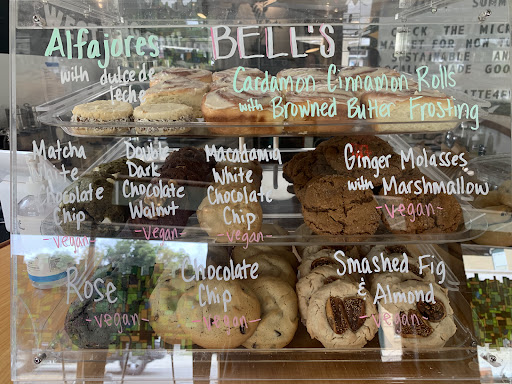 Alfajares
with dulce de
leche
BELL'S
Cardamon Cinnamon Rolls
with Browned Butter Frosting
Matcha
White
Chocolate
Chip
-vegan-
Double
Dark
Chocolate
Walnut
-vegan-
Macadamia
White
Chocolate
Chip
-vegan-
Ginger Molasses
with Marshmallow
-vegan-
Rose
-vegan-
Chocolate
Chip
-vegan-
Smashed Fig
& Almond
-vegan-